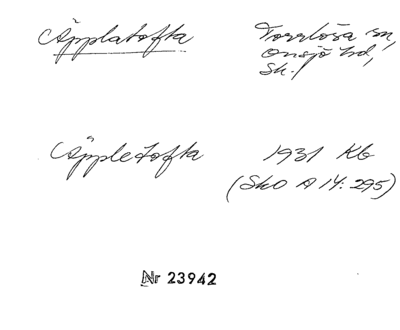 Äpplatofta
Torrlösa sn,
Onsjö hd,
Sk.
Äppletofta
1931 Kb
(SkO A 14: 295)
Nr 23942